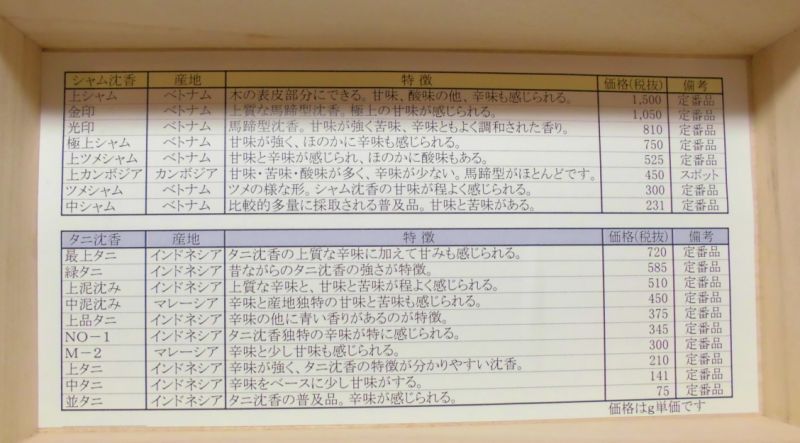 シャム沈香 産地 特徴 価格(税抜) 備考
上シャム ベトナム 木の表皮部分にできる。甘味、酸味の他、辛味も感じられる。 1,500 定番品
金印 ベトナム 上質な馬蹄型沈香。極上の甘味が感じられる。 1,050 定番品
光印 ベトナム 馬蹄型沈香。甘味が強く苦味、辛味ともよく調和された香り。 810 定番品
極上シャム ベトナム 甘味が強く、ほのかに辛味も感じられる。 750 定番品
上ツメシャム ベトナム 甘味と辛味が感じられ、ほのかに酸味もある。 525 定番品
上カンボジア カンボジア 甘味・苦味・酸味が多く、辛味が少ない。馬蹄型がほとんどです。 450 スポット
ツメシャム ベトナム ツメの様な形。シャム沈香の甘味が程よく感じられる。 300 定番品
中シャム ベトナム 比較的多量に採取される普及品。甘味と苦味がある。 231 定番品
タニ沈香 産地 特徴 価格(税抜) 備考
最上タニ インドネシア タニ沈香の上質な辛味に加えて甘みも感じられる。 720 定番品
緑タニ インドネシア 昔ながらのタニ沈香の強さが特徴。 585 定番品
上泥沈み インドネシア 上質な辛味と、甘味と苦味が程よく感じられる。 510 定番品
中泥沈み マレーシア 辛味と産地独特の甘味と苦味も感じられる。 450 定番品
上品タニ インドネシア 辛味の他に青い香りがあるのが特徴。 375 定番品
NO－1 インドネシア タニ沈香独特の辛味が特に感じられる。 345 定番品
M－2 マレーシア 辛味と少し甘味も感じられる。 300 定番品
上タニ インドネシア 辛味が強く、タニ沈香の特徴が分かりやすい沈香。 210 定番品
中タニ インドネシア 辛味をベースに少し甘味がする。 141 定番品
並タニ インドネシア タニ沈香の普及品。辛味が感じられる。 75 定番品
価格はg単価です